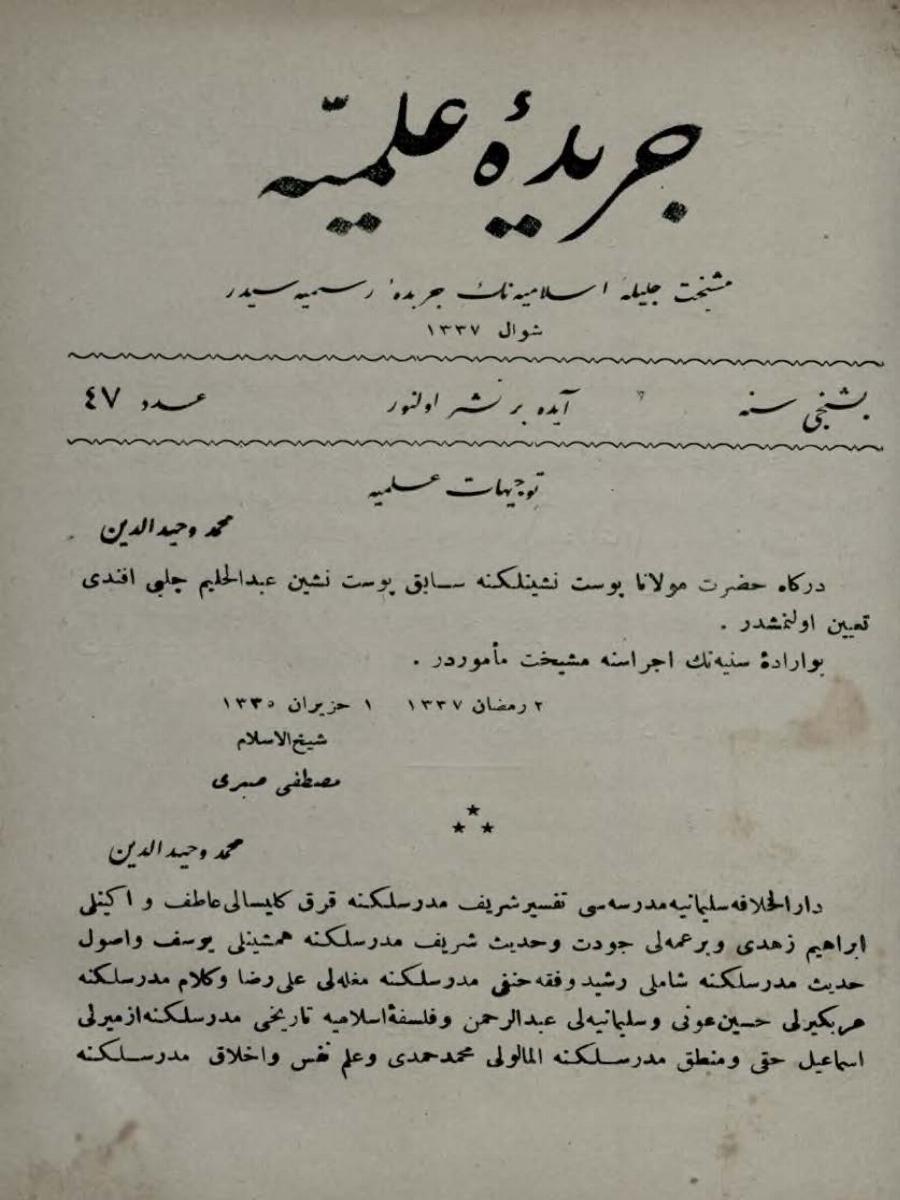 جريدۀ علميّه
مشيخت جليلۀ اسلاميه‌نك جريدۀ رسميه‌سيدر
شوال ١٣٣٧
بشنجى سنه آيده بر نشر اولنور عدد ٤٧
توجيهات علميه
محمد وحيدالدين
دركاه حضرت مولانا پوست نشينلكنه سابق پوست نشين عبدالحليم چلبى افندى
تعيين اولنمشدر .
بوارادۀ سنيه‌نك اجراسنه مشيخت مأموردر .
٢ رمضان ١٣٣٧ ١ حزيران ١٣٣٥
شيخ‌الاسلام
مصطفى صبرى
محمد وحيدالدين
دارالخلافه سليمانيه مدرسه‌سى تفسير شريف مدرسلكنه قرق كليسالى عاطف و اكينلى
ابراهيم زهدى و برعمه‌لى جودت وحديث شريف مدرسلكنه همشينلى يوسف واصول
حديث مدرسلكنه شاملى رشيد وفقه حنفى مدرسلكنه مغله‌لى على رضا وكلام مدرسلكنه
هربكيرلى حسين عونى وسليمانيه‌لى عبدالرحمن وفلسفۀ اسلاميه تاريخى مدرسلكنه ازميرلى
اسماعيل حقى ومنطق مدرسلكنه المالولى محمد حمدى وعلم نفس واخلاق مدرسلكنه